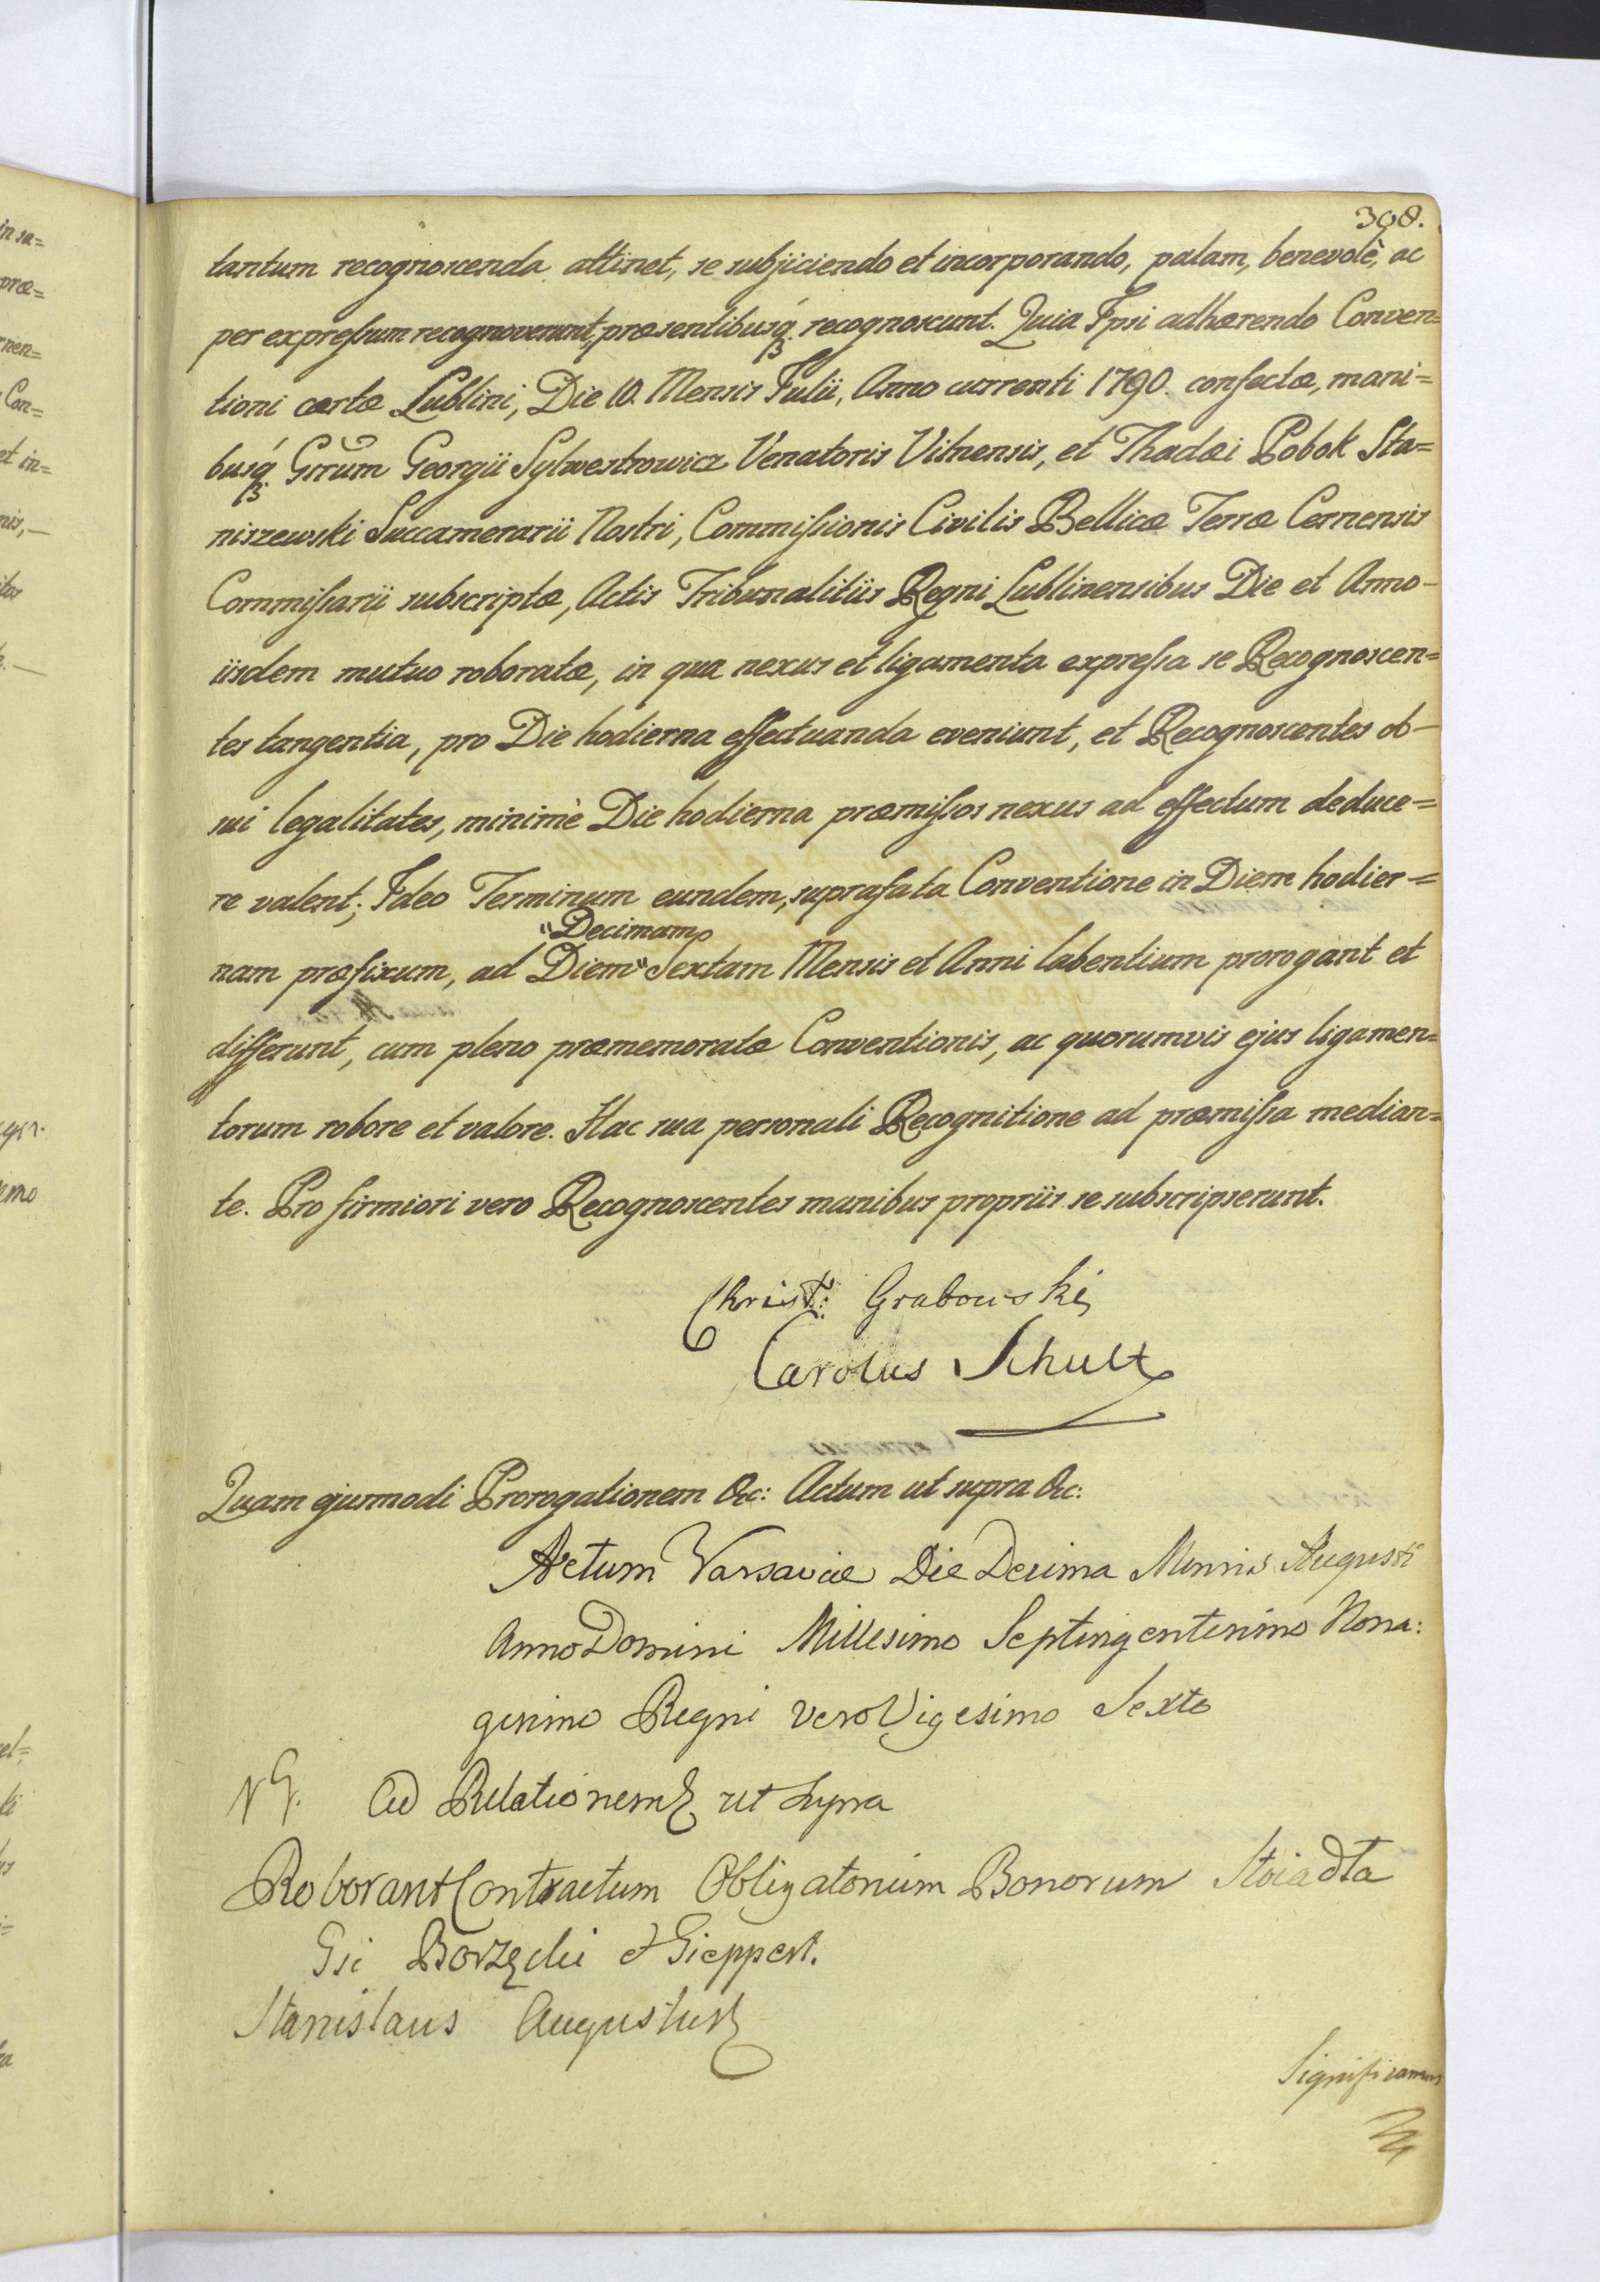 308.
tantum recognoscenda attinet, se subjiciendo et incorporando, palam, benevolè, ac
per expressum recognoverunt, præsentibusq́ꝫ recognoscunt. Quia Ipsi adhærendo Conven=
tioni certæ Lublini, Die 10. Mensis Julii, Anno currenti 1790. confectæ, mani=
busq́ꝫ Grrum Georgii Sylwestrowicz Venatoris Vilnensis, et Thadæi Pobok Sta=
niszewski Succamerarii Nostri, Commissionis Civilis Bellicæ Terræ Cernensis
Commissarii subscriptæ, Actis Tribunalitiis Regni Lublinensibus Die et Anno-
iisdem mutuo roboratæ, in qua nexus et ligamenta expressa se Recognoscen=
tes tangentia, pro Die hodierna effectuanda eveniunt, et Recognoscentes ob-
sui legalitates, minimè Die hodierna præmissos nexus ad effectum deduce=
re valent; Ideo Terminum eundem, suprafata Conventione in Diem hodier=
"Decimam
nam præfixum, ad Diem" Sextam Mensis et Anni labentium prorogant et
differunt, cum pleno præmemoratæ Conventionis, ac quorumvis ejus ligamen=
torum robore et valore. Hac sua personali Recognitione ad præmissa median=
te. Pro firmiori vero Recognoscentes manibus propriis se subscripserunt.
Christ: Grabowski
Carolus Schultz
Quam ejusmodi Prorogationem &c: Actum ut supra &c:
Actum Varsaviæ Die Decima Mensis Augusti
Anno Domini Millesimo Septingentesimo Nona:
gesimo Regni vero Vigesimo Sexto
Ad Relationem ut supra
Roborant Contractum Obligatorium Bonorum
Gsi Borzęcki et Gieppert.
Stanislaus Augustus
Significamus